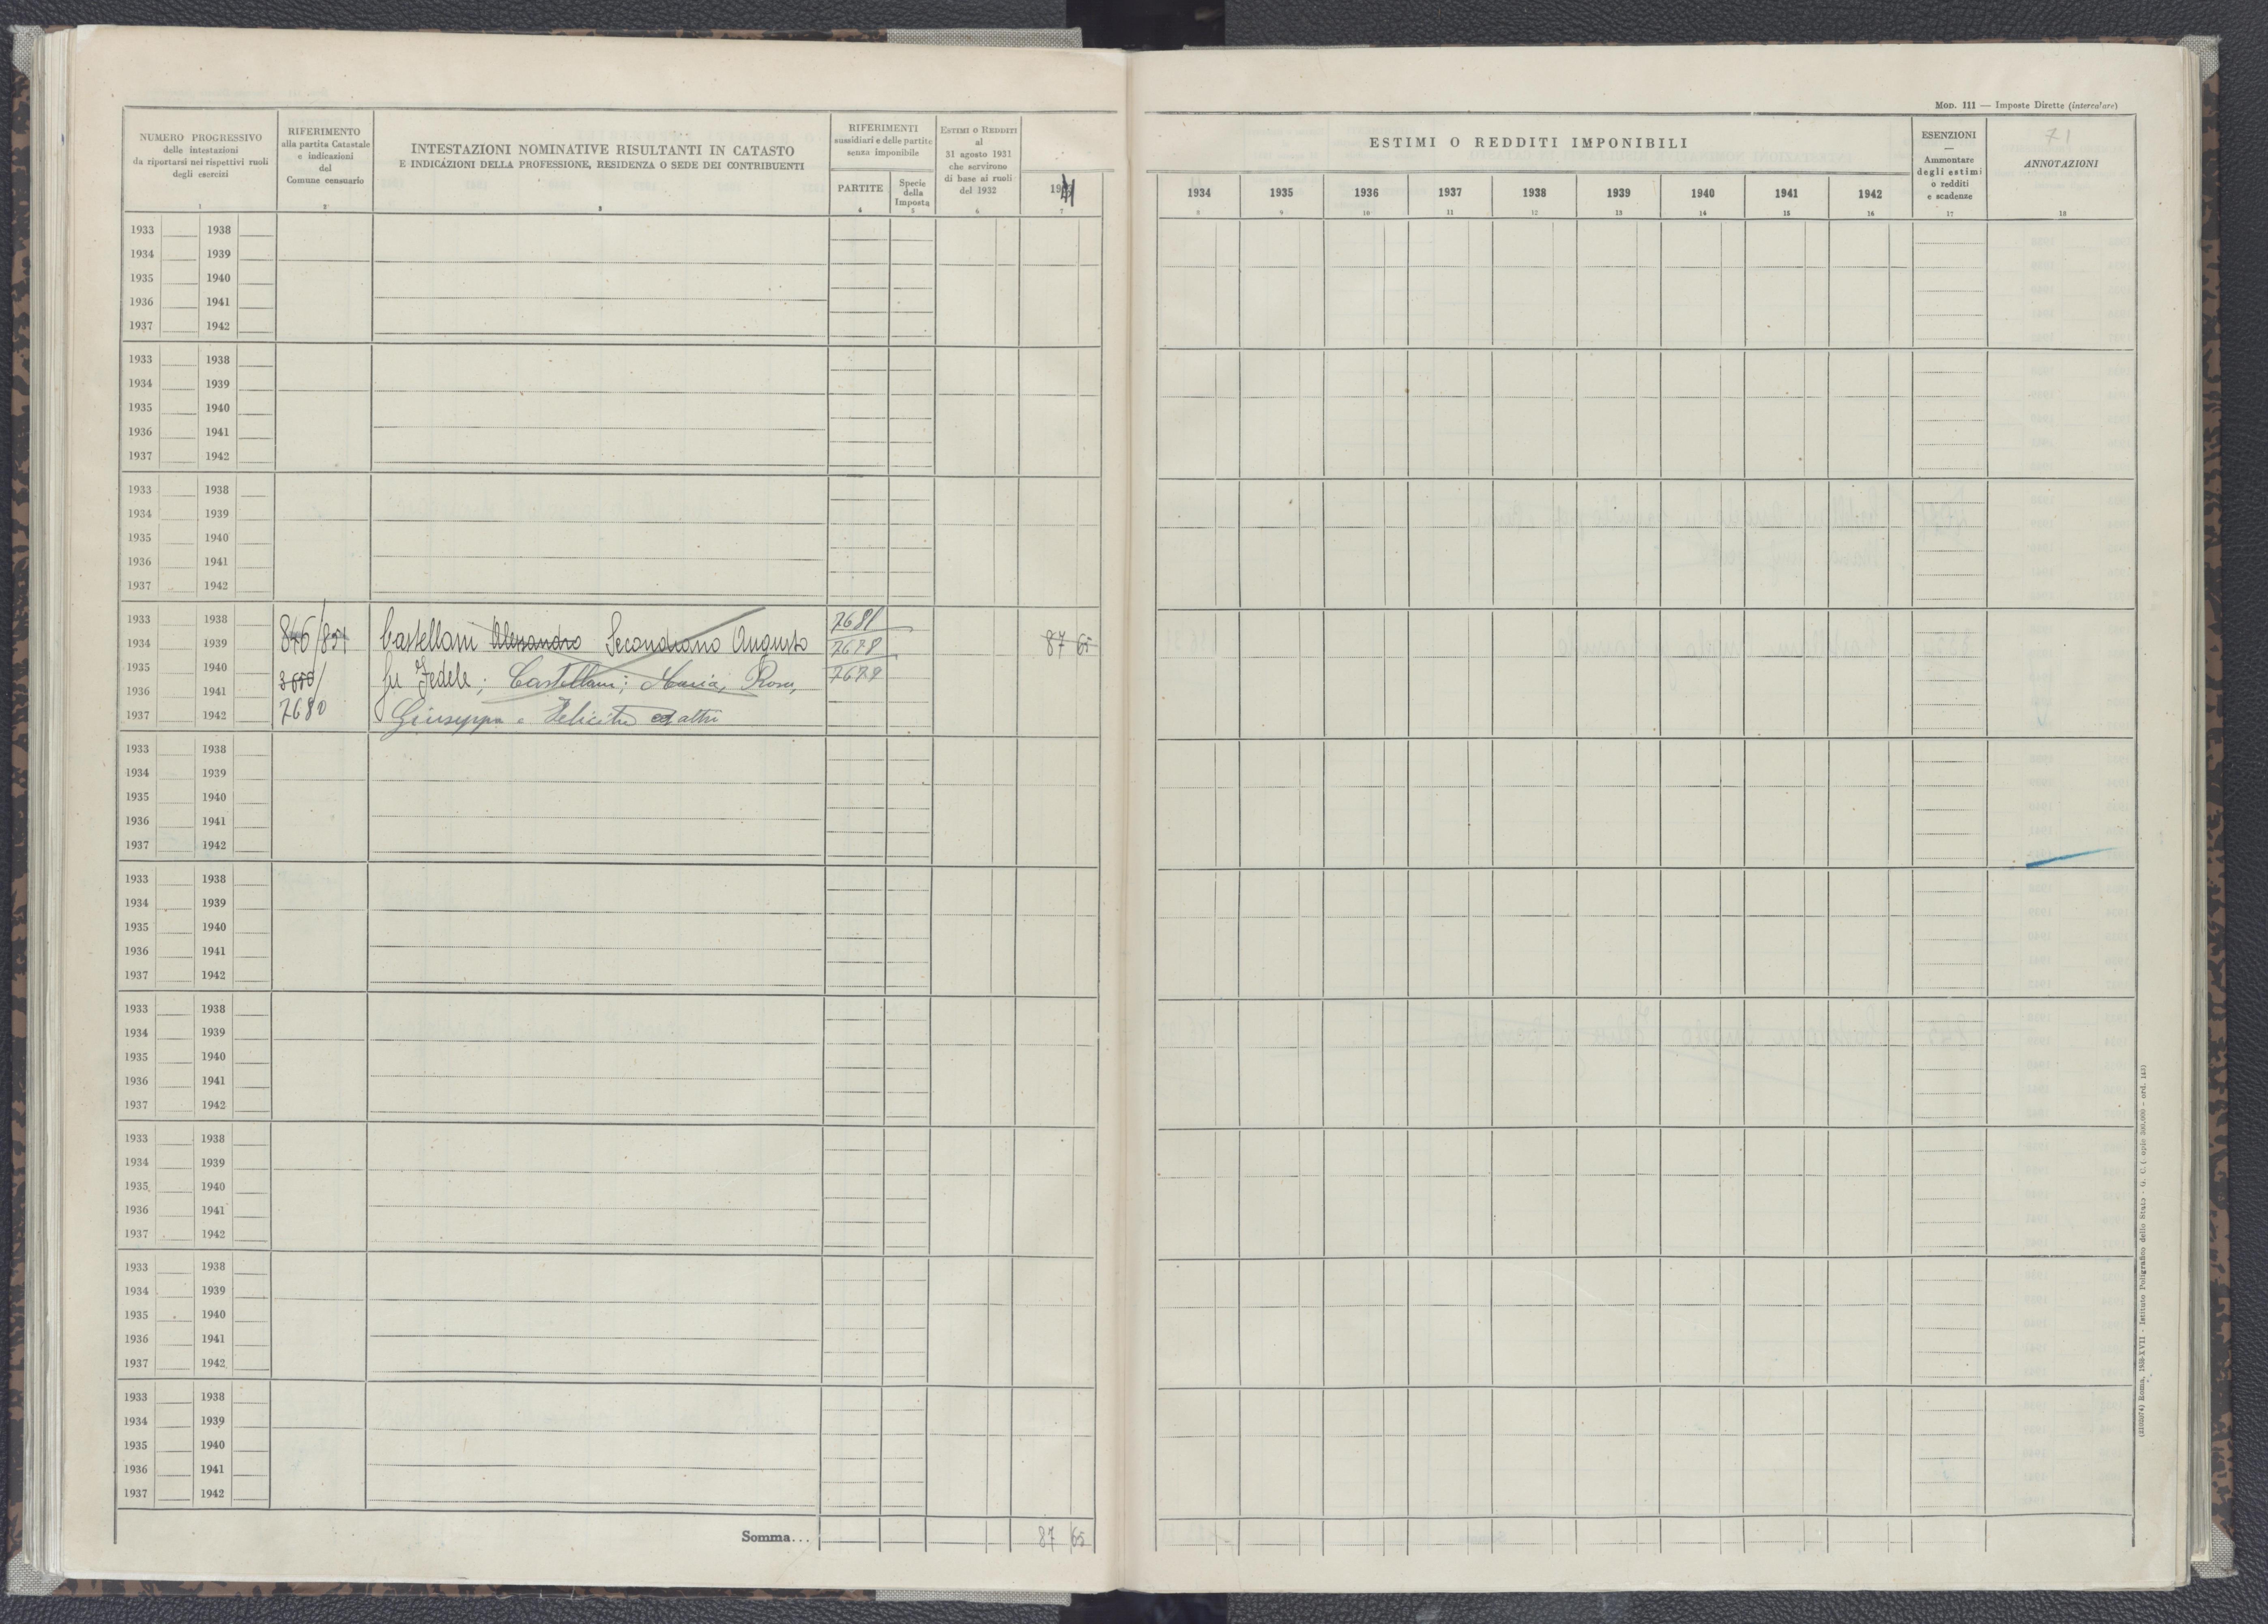 NUMERO PROGRESSIVO
delle intestazioni
da riportarsi nei rispettivi ruoli
degli esercizi
1
RIFERIMENTO
alla partita Catastale
e indicazioni
del
Comune censuario
2
INTESTAZIONI NOMINATIVE RISULTANTI IN CATASTO
E INDICAZIONI DELLA PROFESSIONE, RESIDENZA O SEDE DEI CONTRIBUENTI
3
RIFERIMENTI
sussidiari e delle partite
senza imponibile
PARTITE
4
Specie
della
Imposta
5
ESTIMI O REDDITI
al
31 agosto 1931
che servirono
di base ai ruoli
del 1932
6
7
1933 1938
1934 1939
1935 1940
1936 1941
1937 1942
1933 1938
1934 1939
1935 1940
1936 1941
1937 1942
1933 1938
1934 1939
1935 1940
1936 1941
1937 1942
1933 1938 7681
1934 1939 846/851 Castellani Alessandro Secondiano Augusto 7678 87 65
1935 1940 fu Fedele; Castellani; Maria, Rosa, 7679
1936 1941
1937 1942 7680 Giuseppa e Felicita ed altri
1933 1938
1934 1939
1935 1940
1936 1941
1937 1942
1933 1938
1934 1939
1935 1940
1936 1941
1937 1942
1933 1938
1934 1939
1935 1940
1936 1941
1937 1942
1933 1938
1934 1939
1935 1940
1936 1941
1937 1942
1933 1938
1934 1939
1935 1940
1936 1941
1937 1942
1933 1938
1934 1939
1935 1940
1936 1941
1937 1942
Somma... 87 65
MOD. 111 — Imposte Dirette (intercalare)
ESTIMI O REDDITI IMPONIBILI
1934 1935 1936 1937 1938 1939 1940 1941 1942
8 9 10 11 12 13 14 15 16
ESENZIONI
—
Ammontare
degli estimi
o redditi
e scadenze
17
71
ANNOTAZIONI
18
Roma, 1939-XVII - Istituto Poligrafico dello Stato - G. C.